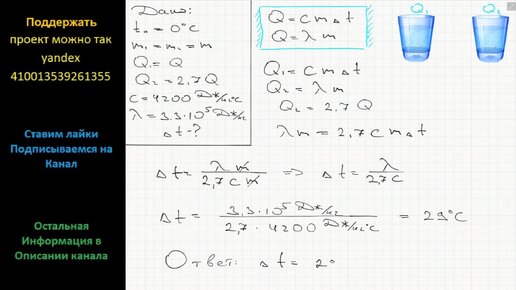 Поддержать
проект можно так
yandex
410013539261355
Ставим лайки
Подписываемся на
Канал
Остальная
Информация в
Описании канала
Дано:
tн = 0°C
m₁ = m₂ = m
Q₁ = Q
Q₂ = 2,7 Q
c = 4200 Дж/кг°C
λ = 3,3·10⁵ Дж/кг
Δt - ?
Q = c m Δt
Q = λ m
Q₁ = c m Δt
Q₂ = λ m
Q₂ = 2,7 Q
λ m = 2,7 c m Δt
Δt = λ m / 2,7 c m => Δt = λ / 2,7 c
Δt = 3,3·10⁵ Дж/кг / 2,7 · 4200 Дж/кг°C = 29°C
Ответ: Δt = 2°
Q₁
Q₂